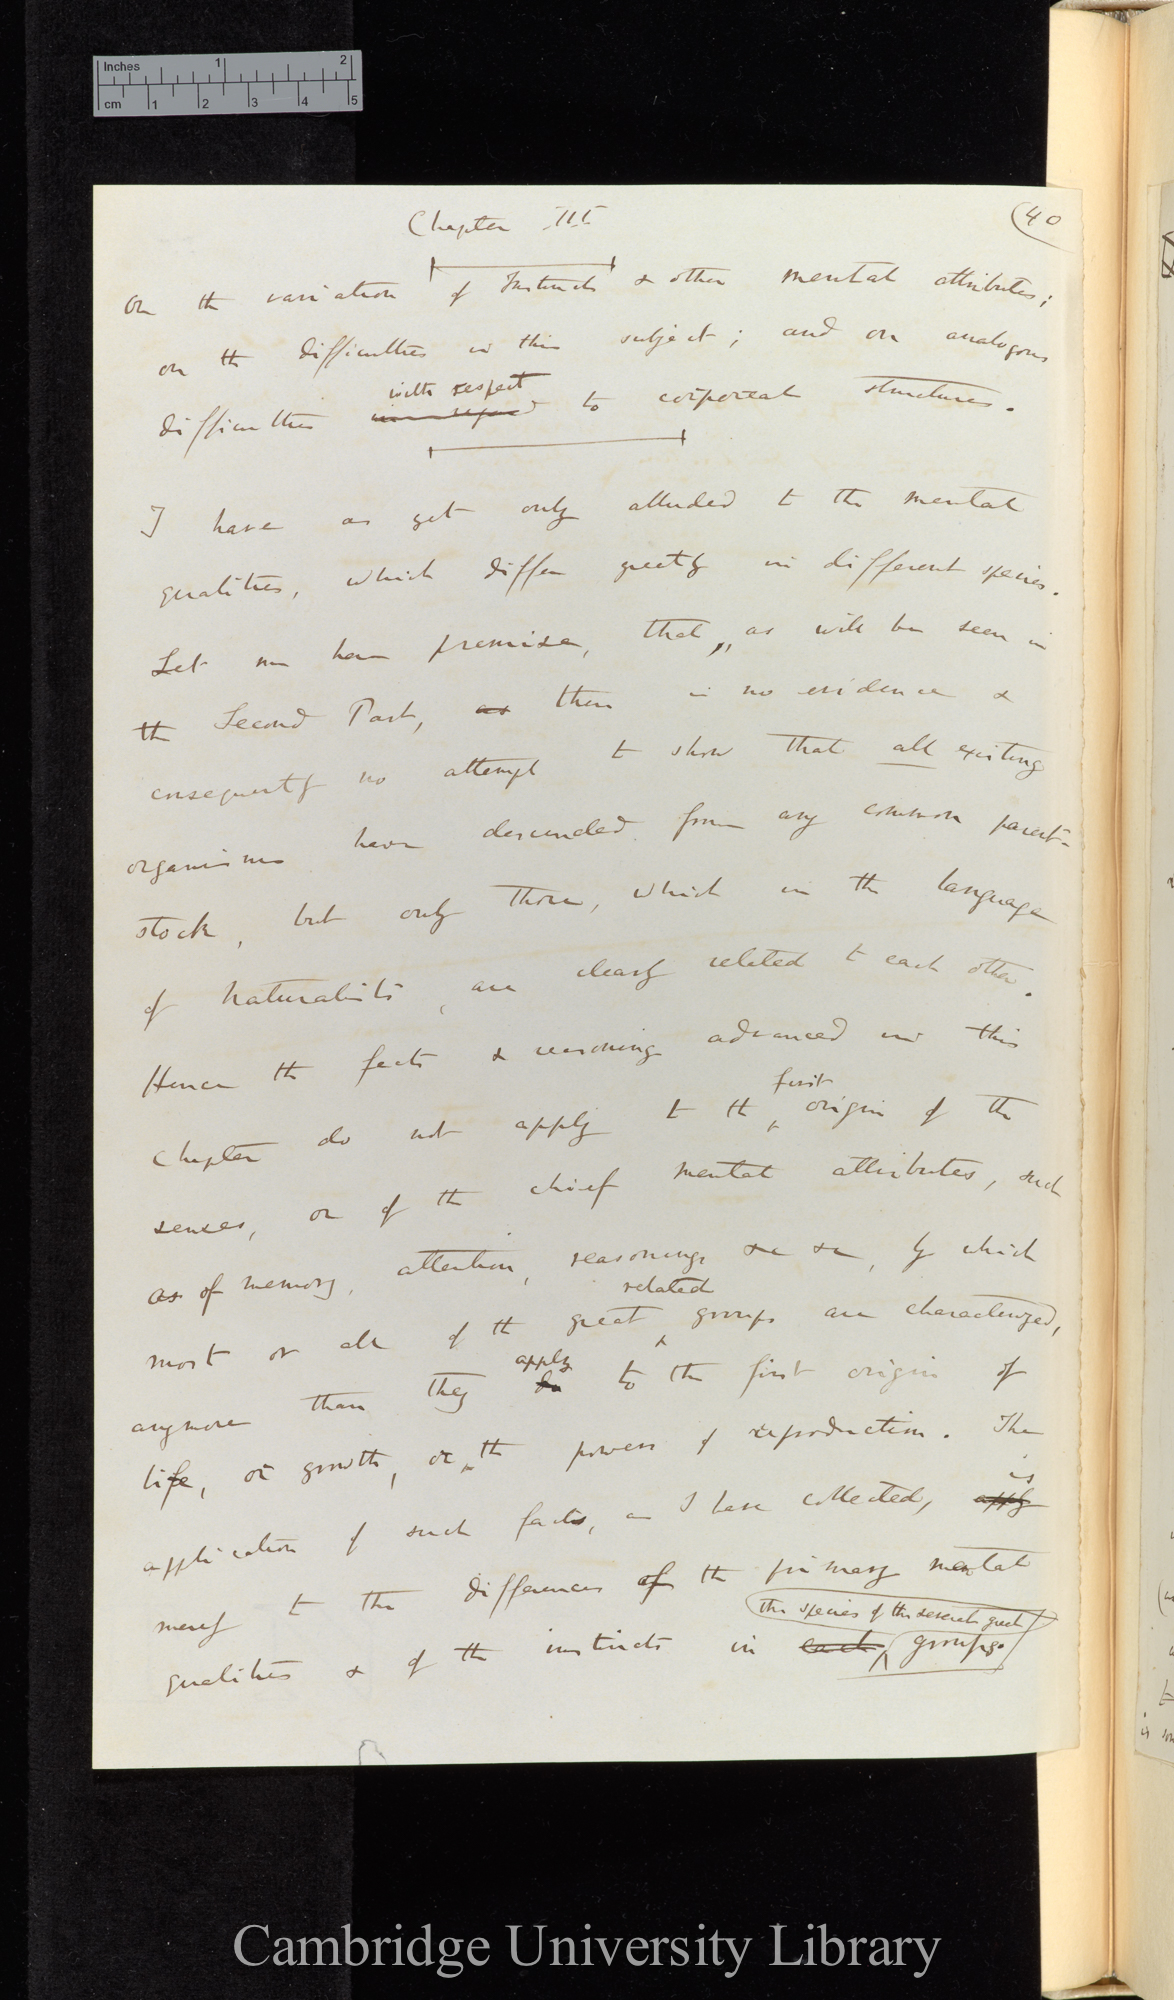 Inches 1 2
cm 1 2 3 4 5
Chapter III
(40
On the variation of Instincts & other mental attributes;
on the difficulties in this subject; and on analogous
with respect
difficulties in regard to corporeal structures.
I have as yet only alluded to the mental
qualities, which differ greatly in different species.
Let me here premise, that, as will be seen in
the Second Part, as there is no evidence &
consequently no attempt to show that all existing
organisms have descended from any common parent-
stock, but only those, which in the language
of naturalists, are clearly related to each other.
Hence the facts & reasoning advanced in this
first
chapter do not apply to the origin of the
senses, or of the chief mental attributes, such
as of memory, attention, reasoning &c &c, by which
related
most or all of the great groups are characterized,
apply
anymore than they do to the first origin of
life, or growth, or the powers of reproduction. The
is
application of such facts, as I have collected, apply
merely to the differences of the primary mental
the species of the several great
qualities & of the instincts in each groups.
Cambridge University Library